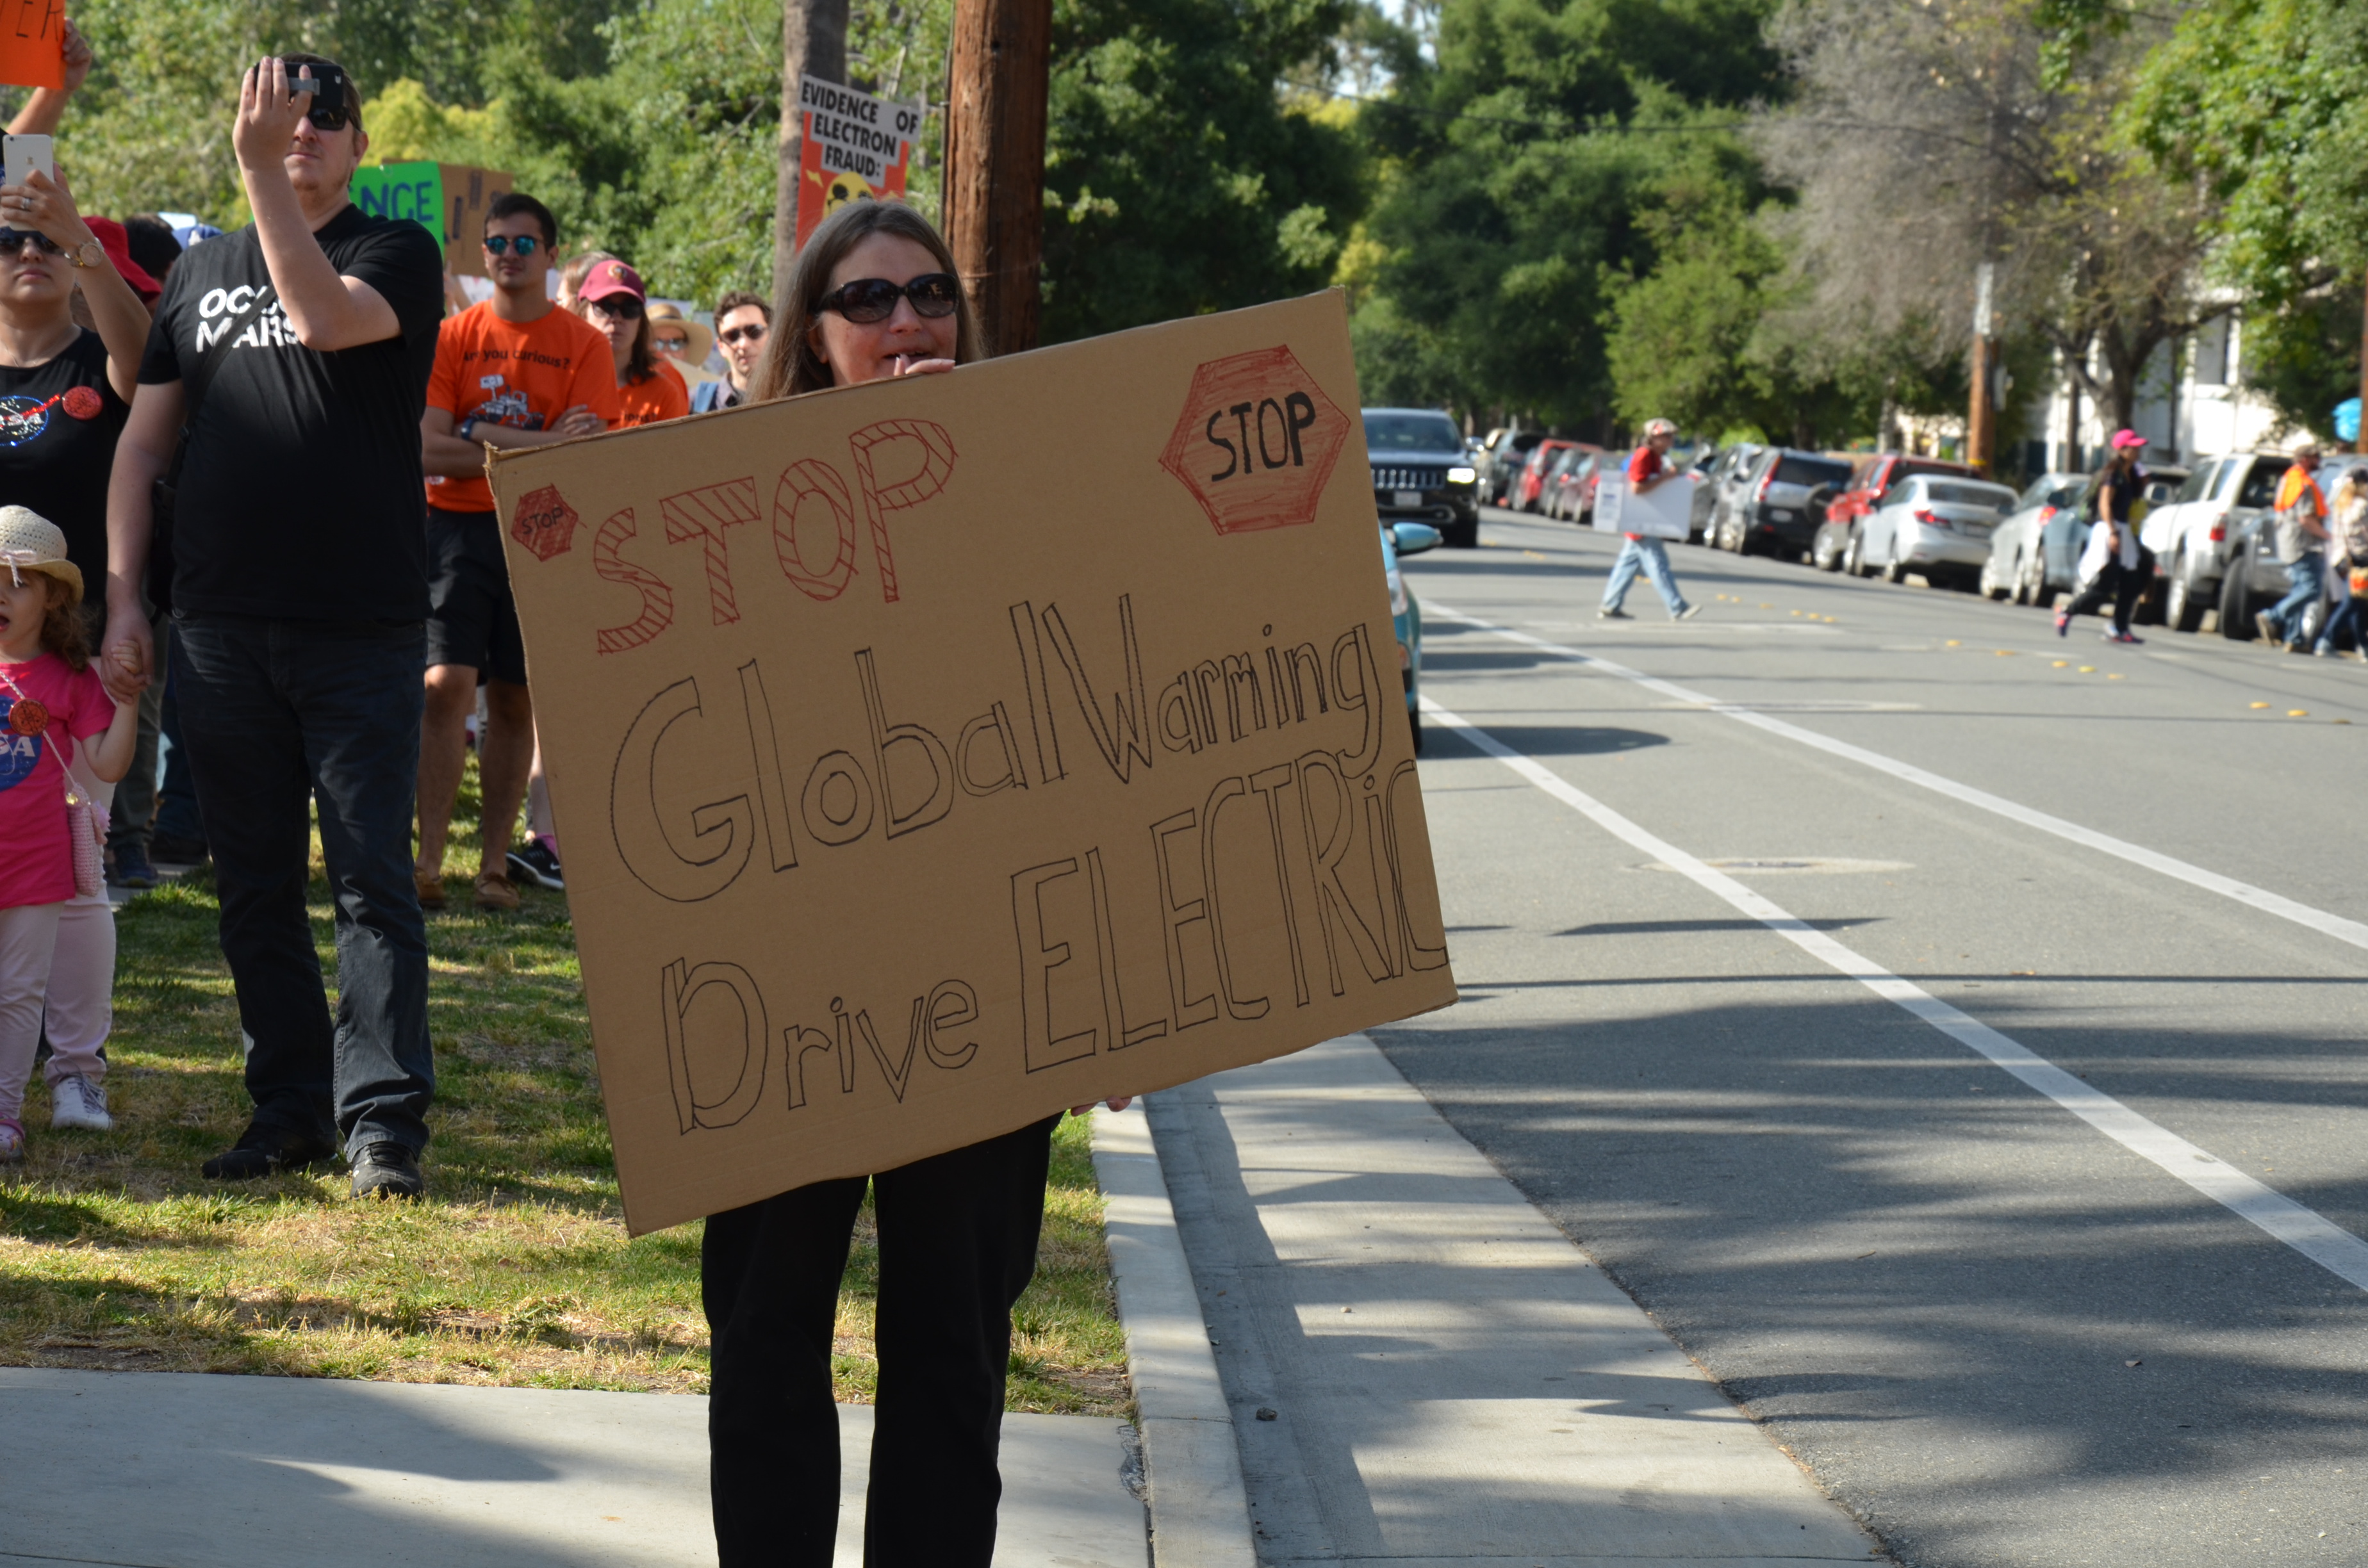 EVIDENCE OF
ELECTRON
FRAUD:
NCE
OCC
MARS
Are you curious?
STOP
STOP
STOP
Global Warming
Drive ELECTRIC